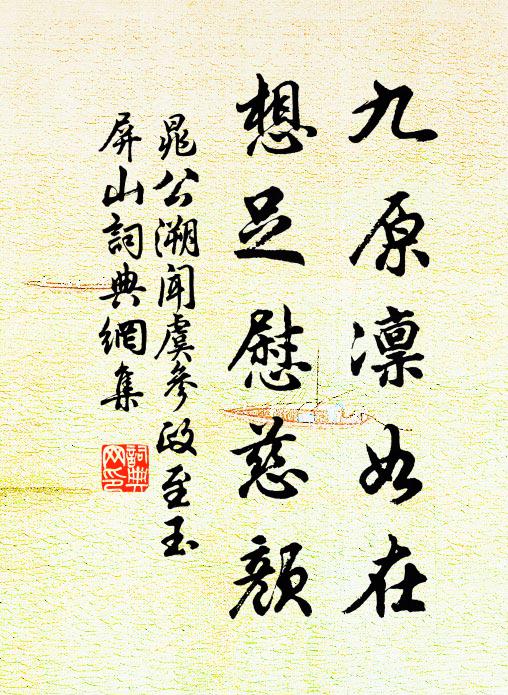 九原凛如在
想足慰慈顔
晁公溯闻虞参政至玉
屏山詞典網集
詞典
网印